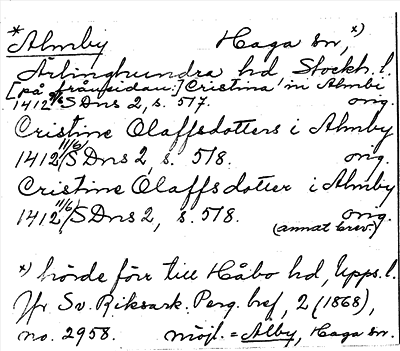 *Almby Haga sn, x)
Ärlinghundra hd, Stockh. l.
[på frånsidan:] Cristina in Almbi
1412 SDns 2, s. 517. orig.
Cristine Olaffsdotters i Almby
1412 11/6 SDns 2, s. 518. orig.
Cristine Olaffsdotter i Almby
1412 11/6 SDns 2, s. 518. orig.
(annat brev.)
x) hörde förr till Håbo hd, Upps. l.
Jfr Sv. Riksark. Perg. bref, 2 (1868),
no. 2958. möjl. = Alby, Haga sn.